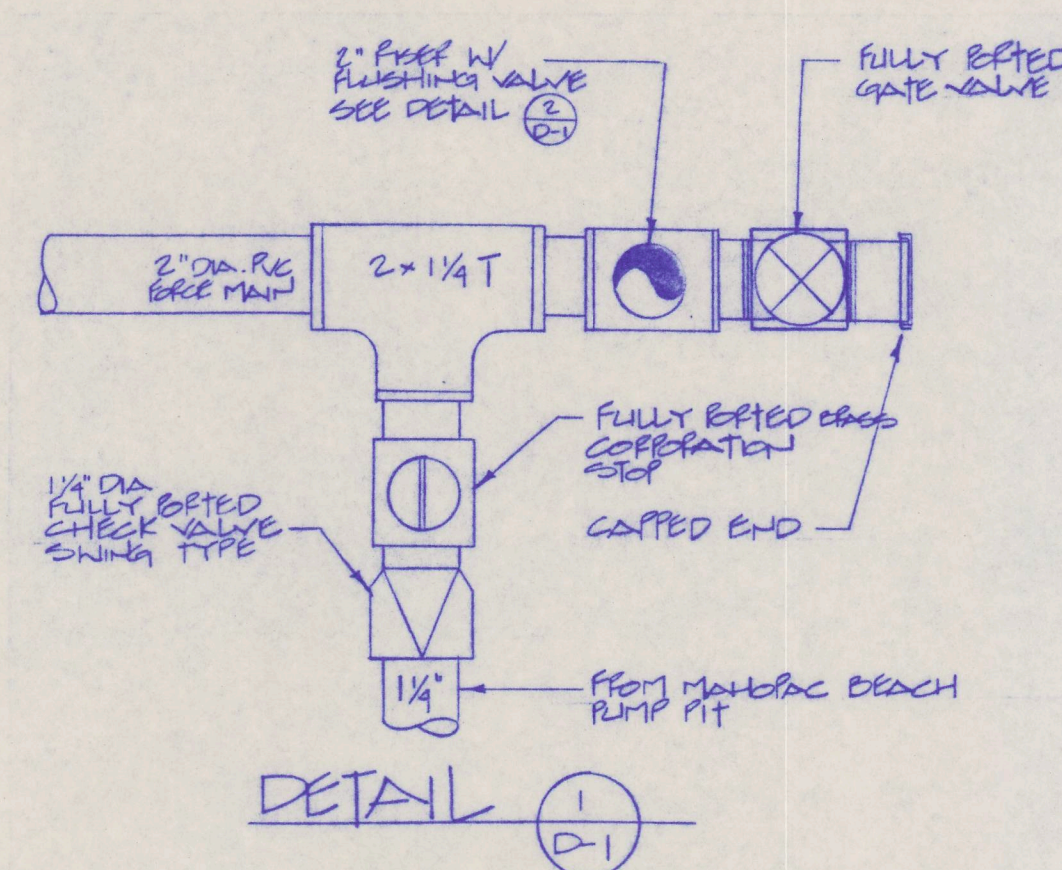 2" RISER W/
FLUSHING VALVE
SEE DETAIL 2
D-1
FULLY PORTED
GATE VALVE
2" DIA. PVC
FORCE MAIN
2 x 1¼ T
FULLY PORTED BRASS
CORPORATION
STOP
1¼" DIA
FULLY PORTED
CHECK VALVE
SWING TYPE
CAPPED END
1¼"
FROM MAHOPAC BEACH
PUMP PIT
DETAIL 1
D-1